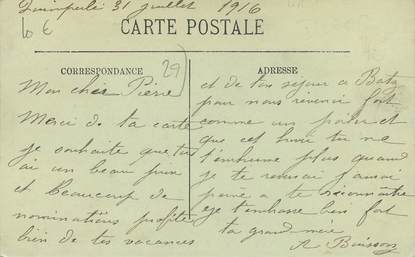 Quimperlé 31 juillet 1916
10 €
CARTE POSTALE
CORRESPONDANCE
29
ADRESSE
Mon cher Pierre
Merci de ta carte
je souhaite que tu
ai un beau prix
et beaucoup de
nominations profite
bien de tes vacances
et de ton séjour a Batz
pour nous revenir fort
comme un
que cet hiver tu ne
t'enrhume plus quand
je te reverai j'aurai
peine a te reconnaitre
je t'embrasse bien fort
ta grand mère
A Buisson